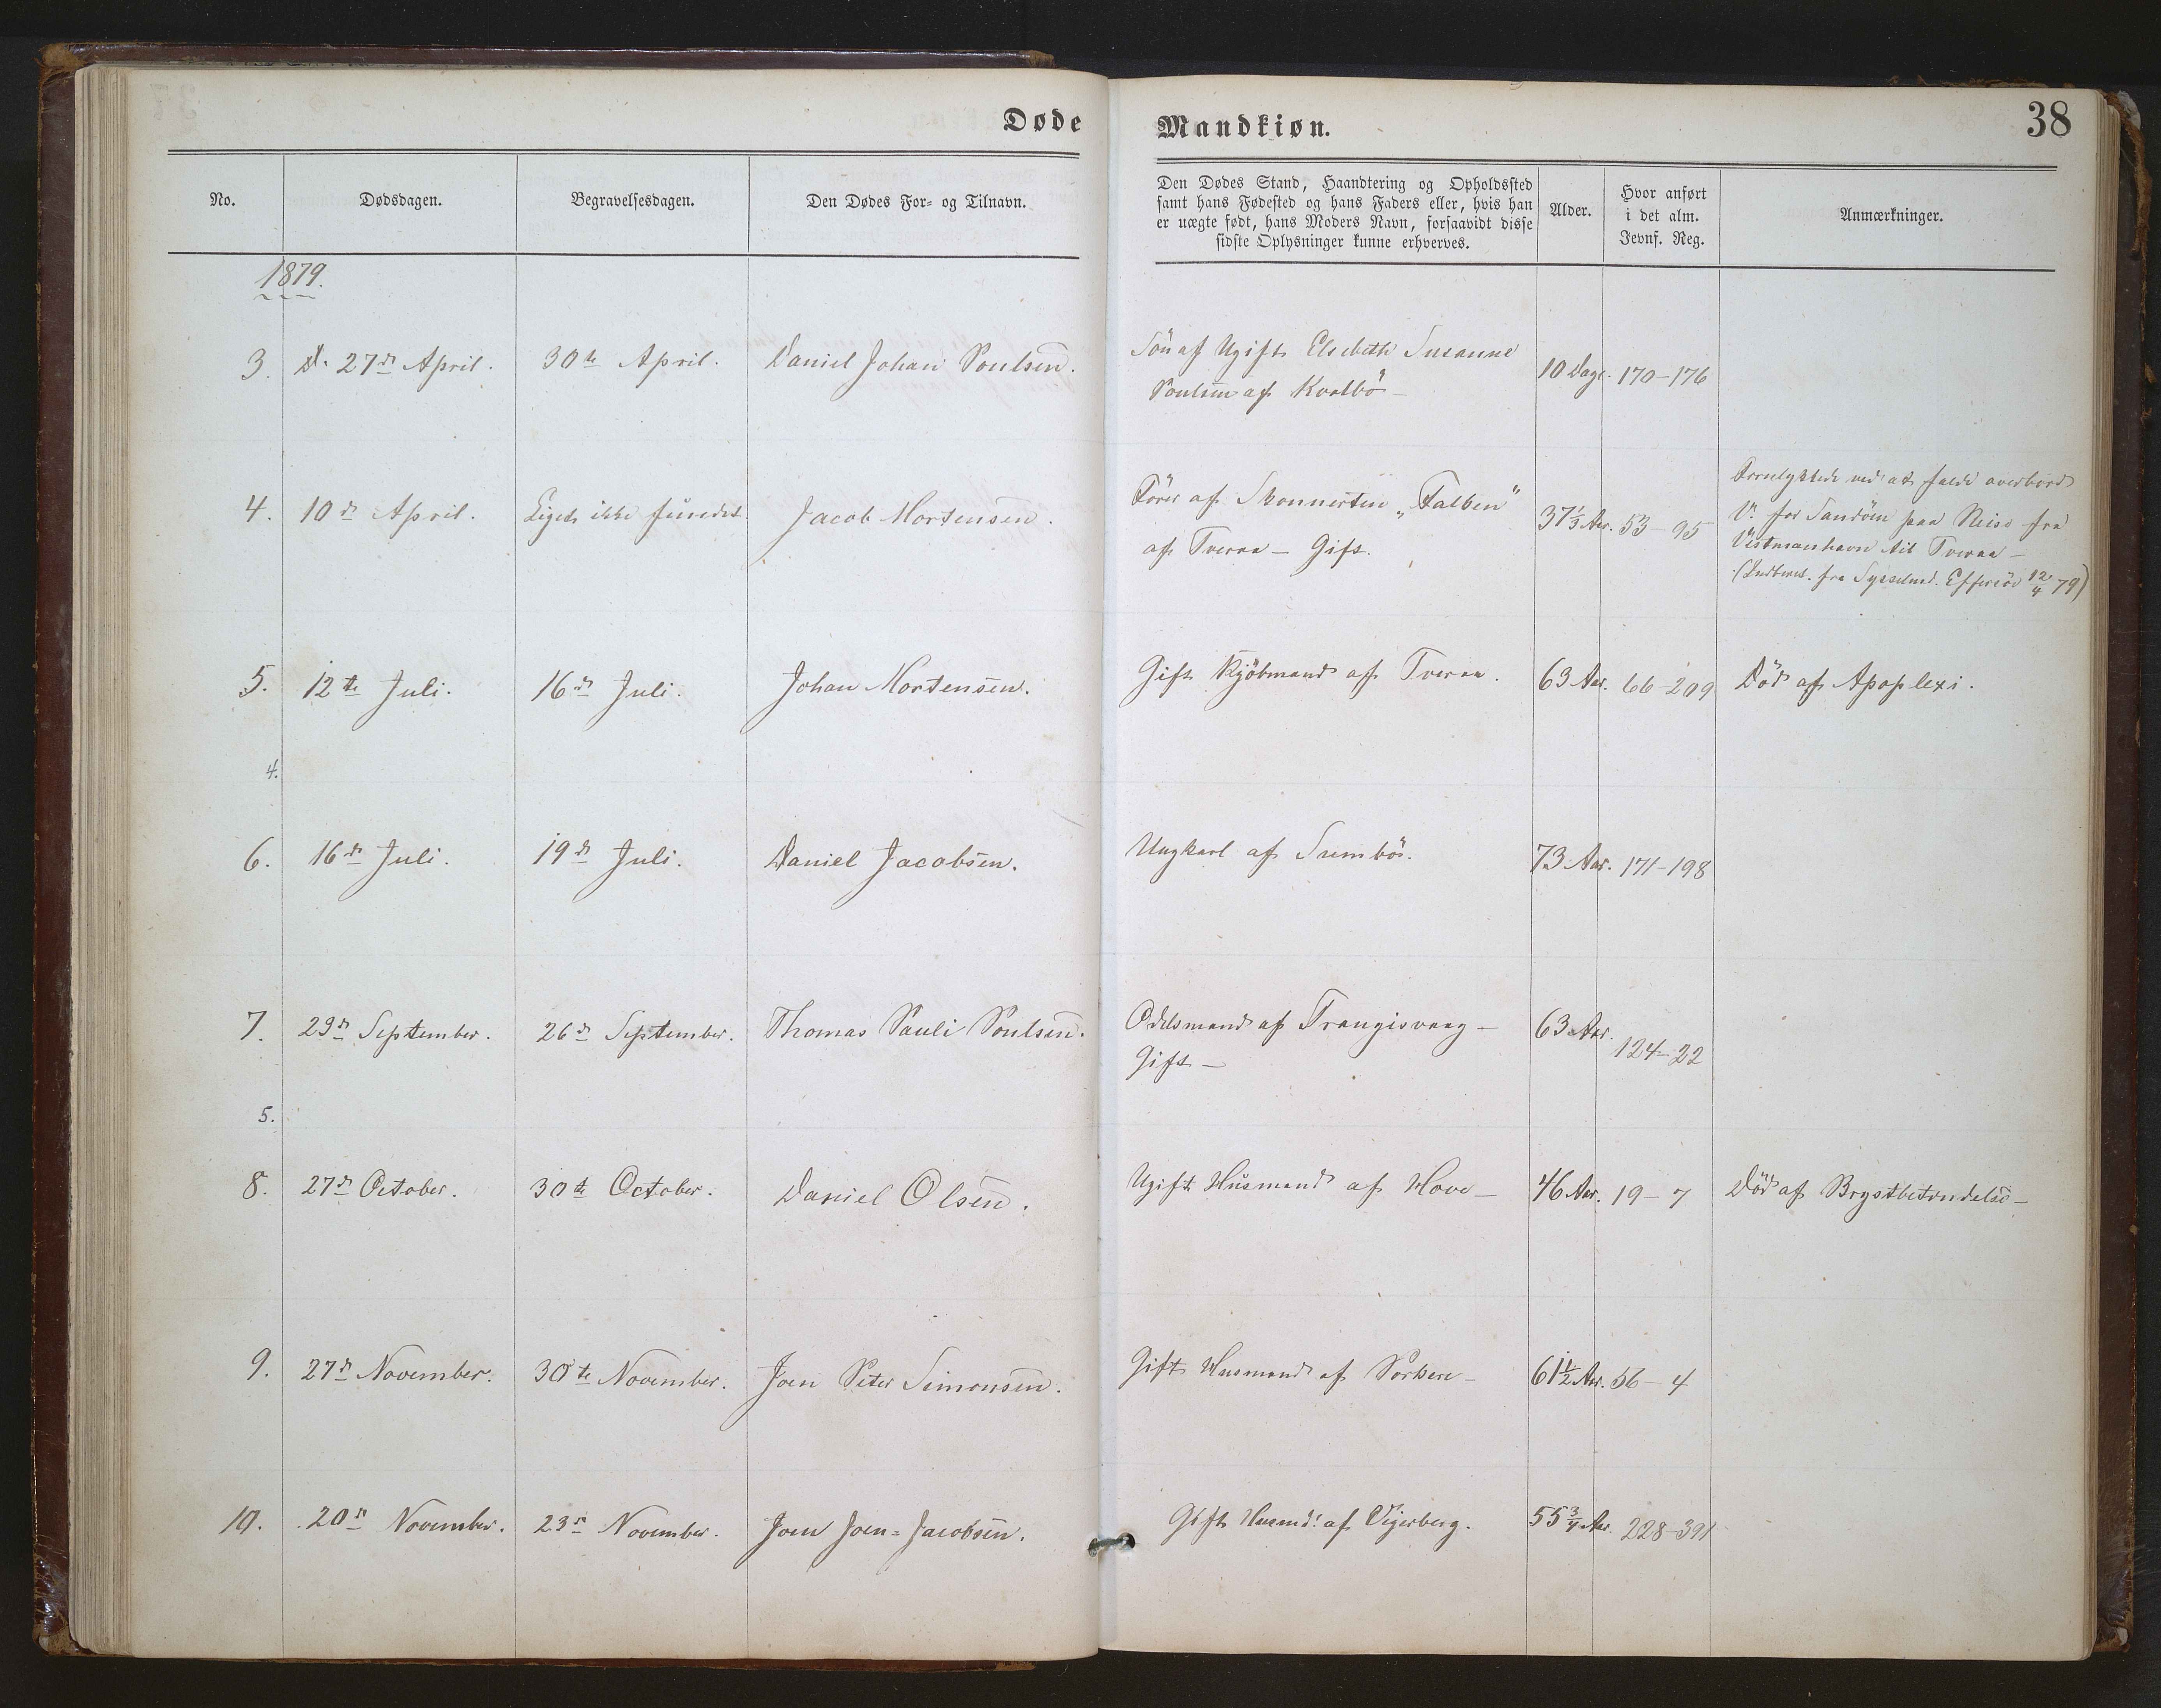 Døde
Mandkiøn.
38
No.
Dødsdagen.
Begravelsesdagen.
Den Dødes For- og Tilnavn.
Den Dødes Stand, Haandtering og Opholdssted
samt hans Fødested og hans Faders eller, hvis han
er uægte født, hans Moders Navn, forsaavidt disse
sidste Oplysninger kunne erhverves.
Alder.
Hvor anført
i det alm.
Jevnf. Reg.
Anmærkninger.
1879.
3. D. 27de April. 30te April. Daniel Johan Poulsen.
Sön af Ugift Elsebeth Susanne
Poulsen af Kvalbö –
10 Dage. 170–176
4. 10de April. Liget ikke fundet. Jacob Mortensen.
Förer af Skonnerten „Falken"
af Tveraa – Gift.
37 1/3 Aar. 53–95
Forulykkede ved at falde overbord
V. for Sandöen paa Reise fra
Vestmanhavn til Tveraa –
(Indberet. fra Sysselmd. Effersöe 12/4 79)
5. 12te Juli. 16de Juli. Johan Mortensen.
Gift Kjöbmand af Tveraa. 63 Aar. 66–209 Död af Apoplexi.
4.
6. 16de Juli. 19de Juli. Daniel Jacobsen.
Ungkarl af Sumbö. 73 Aar. 171–198
7. 23de September. 26de September. Thomas Pauli Poulsen.
Odelsmand af Trangisvaag –
Gift –
63 Aar. 124–22
5.
8. 27de October. 30te October. Daniel Olsen.
Ugift Husmand af Hove – 46 Aar. 19–7 Död af Brystbetændelse –
9. 27de November. 30te November. Joen Peter Simonsen.
Gift Husmand af Porkere – 61 1/2 Aar. 56–4
10. 20de November. 23de November. Joen Joen-Jacobsen.
Gift Husmd. af Vijerberg. 55 3/4 Aar. 228–391